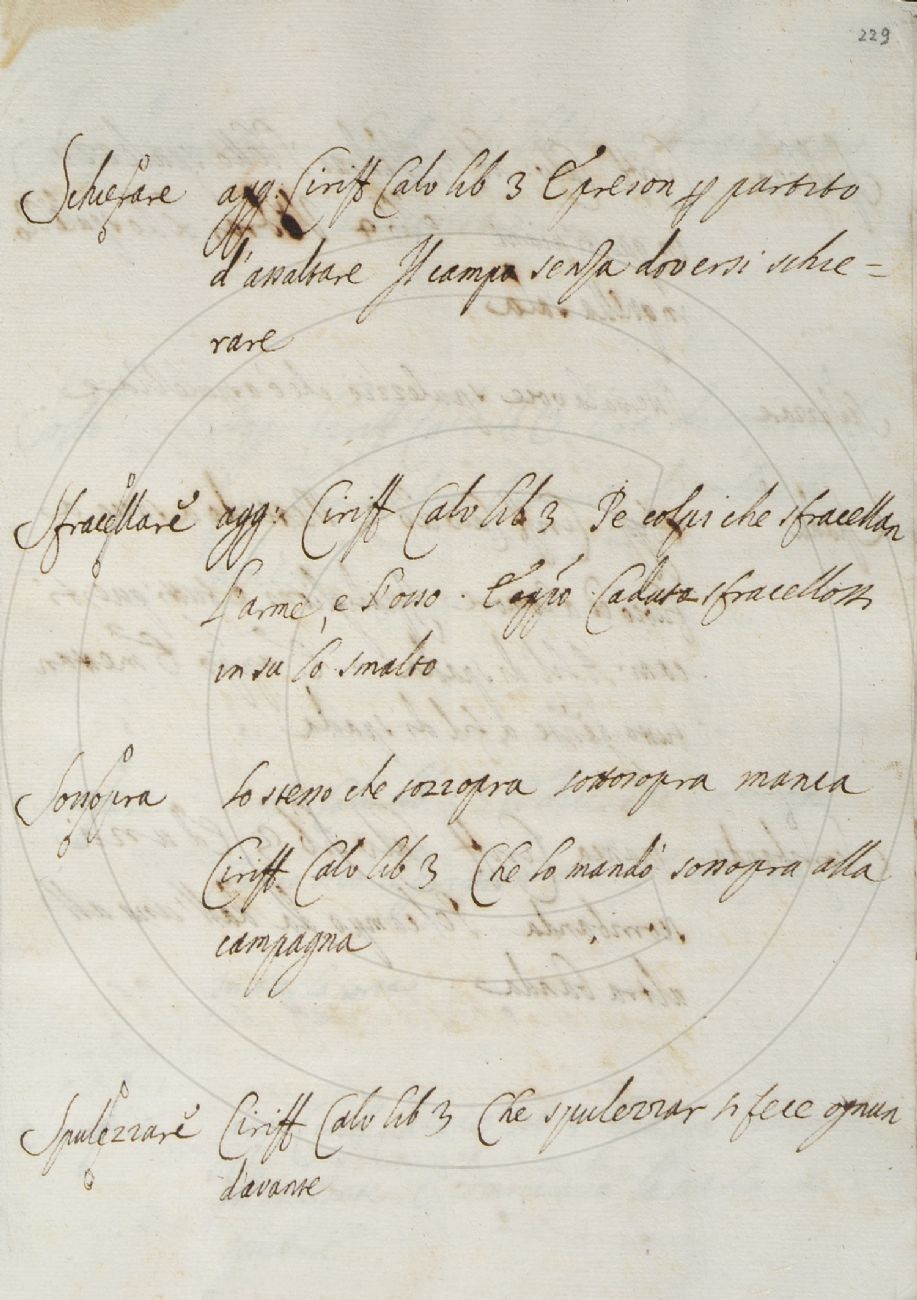 229
Schierare agg: Ciriff Calv lib 3 E preson p partito
d'assaltare Il campo senza doversi schie=
rare
Sfracellare agg: Ciriff Calv lib 3 De colpi che sfracellan
L'arme, e l'osso. E appo Caduta sfracellossi
in su lo smalto
Sossopra lo stesso che sozzopra sottosopra manca
Ciriff Calv lib 3 Che lo mandò sossopra alla
campagna
Spulezzare Ciriff Calv lib 3 Che spulezzar si fece ognun
d'avante